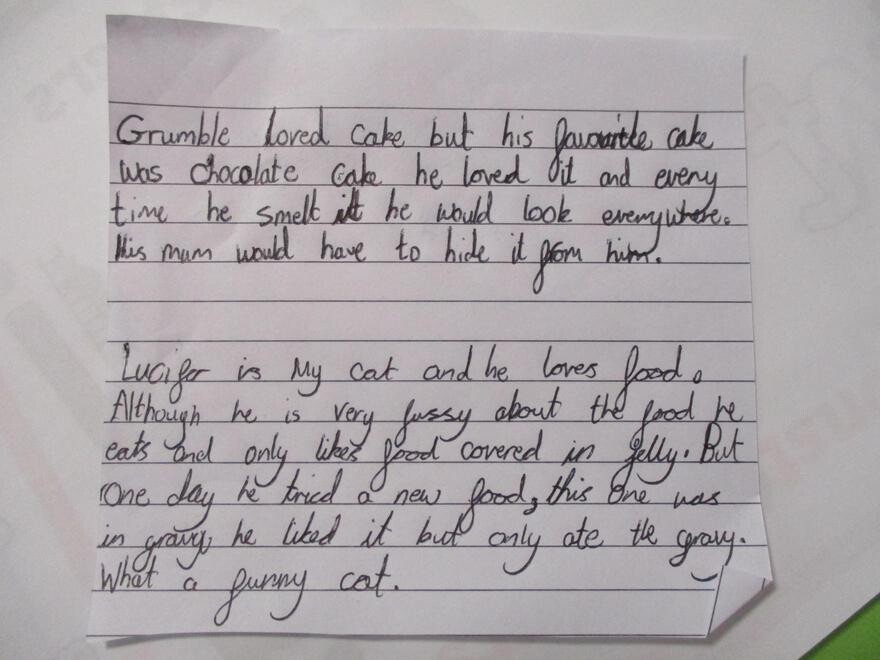 Grumble loved cake but his favourite cake
was chocolate cake he loved it and every
time he smelt it he would look everywhere.
His mum would have to hide it from him.
Lucifer is My cat and he loves food.
Although he is very fussy about the food he
eats and only likes food covered in jelly. But
One day he tried a new food, this one was
in gravy he liked it but only ate the gravy.
What a funny cat.